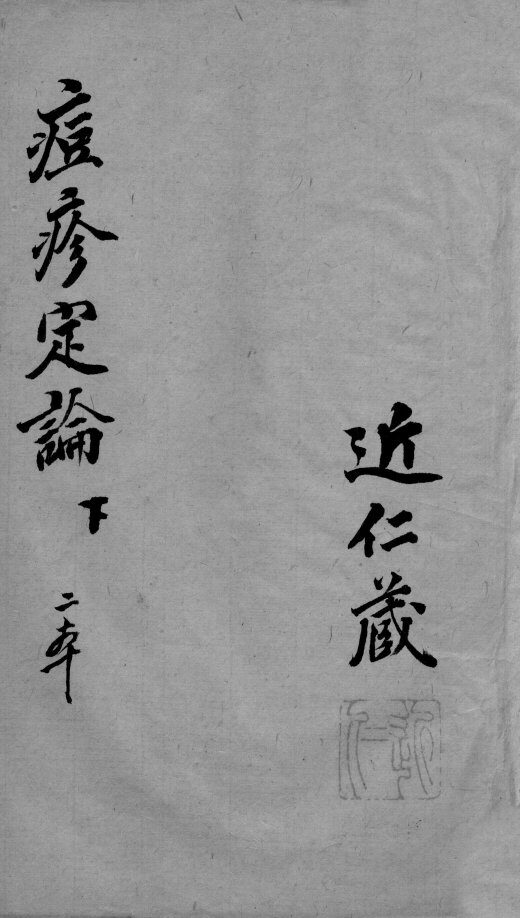 近仁藏
痘疹定論 下 二本
近仁